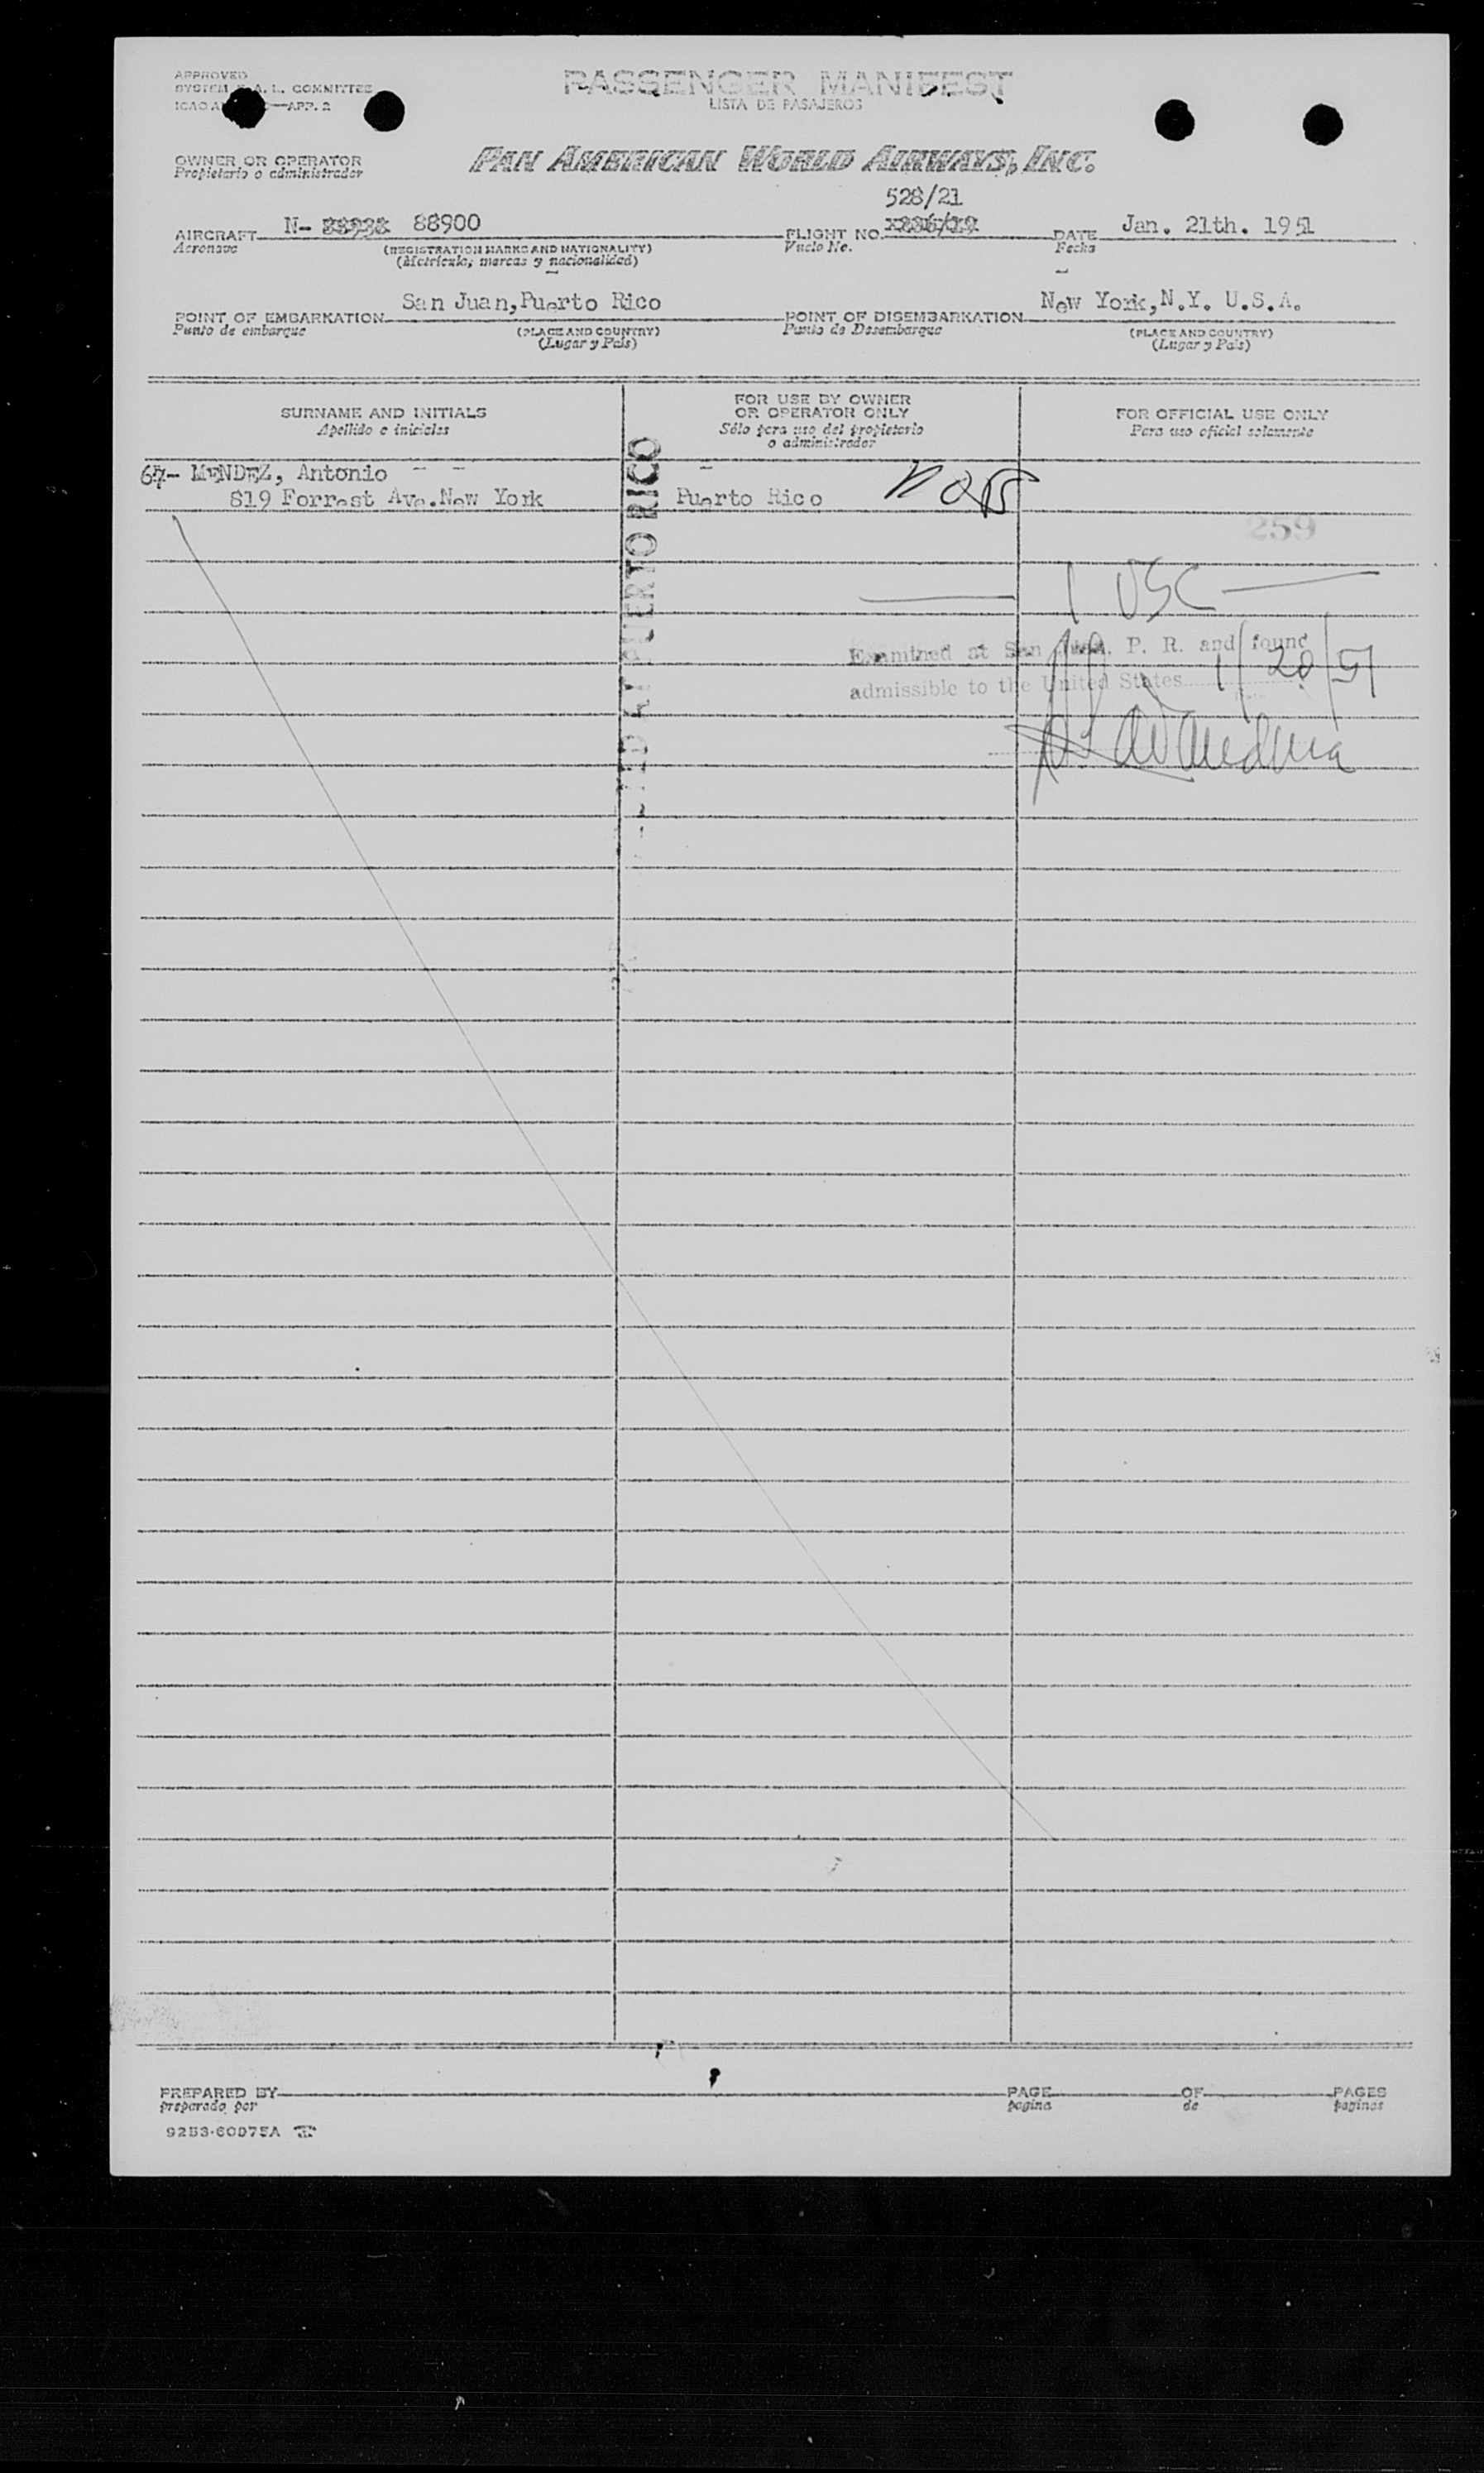 APPROVED
PASSENGER MANIFEST
SYSTEM A. L. COMMITTEE
LISTA DE PASAJEROS
ICAO —APP. 2
OWNER OR OPERATOR
Propietario o administrador
PAN AMERICAN WORLD AIRWAYS, INC.
528/21
AIRCRAFT N- 88900 FLIGHT NO. DATE Jan. 21th. 1951
Aeronave (REGISTRATION MARKS AND NATIONALITY) Vuelo No. Fecha
(Matrícula, marcas y nacionalidad)
POINT OF EMBARKATION San Juan,Puerto Rico POINT OF DISEMBARKATION New York,N.Y. U.S.A.
Punto de embarque (PLACE AND COUNTRY) Punto de Desembarque (PLACE AND COUNTRY)
(Lugar y País) (Lugar y País)
SURNAME AND INITIALS
Apellido e iniciales
FOR USE BY OWNER
OR OPERATOR ONLY
Sólo para uso del propietario
o administrador
FOR OFFICIAL USE ONLY
Para uso oficial solamente
MENDEZ, Antonio - -
819 Forrest Ave.New York Puerto Rico
PUERTO RICO
259
1 USC
Examined at San Juan. P. R. and found
admissible to the United States 1/20/51
PREPARED BY PAGE OF PAGES
preparado por pagina de paginas
92B3-60D75A